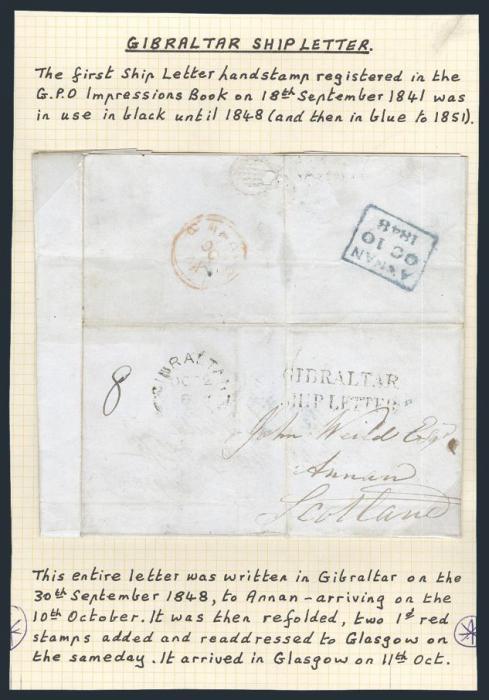 GIBRALTAR SHIP LETTER.
The first Ship Letter handstamp registered in the
G.P.O Impressions Book on 18th September 1841 was
in use in black until 1848 (and then in blue to 1851).
ANNAN
OC 10
1848
8
GIBRALTAR
OC 2
GIBRALTAR
SHIP LETTER
John Weild Esqr
Annan
Scotland
This entire letter was written in Gibraltar on the
30th September 1848, to Annan - arriving on the
10th October. It was then refolded, two 1d red
stamps added and readdressed to Glasgow on
the sameday. It arrived in Glasgow on 11th Oct.